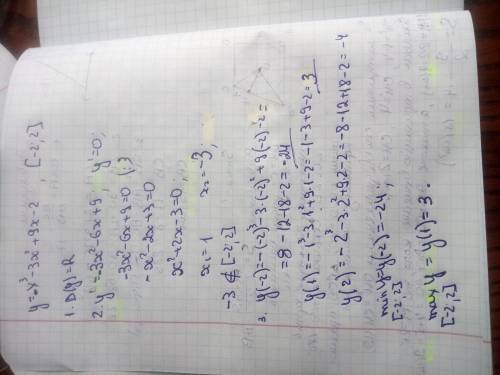 y=-x³-3x²+9x-2 , [-2;2]
1. D(y)=R
2. y'=-3x²-6x+9 , y'=0;
-3x²-6x+9=0 (:3)
-x²-2x+3=0
x²+2x-3=0,
x₁=1 x₂=-3;
-3∉[-2;2]
3. y(-2)=-(-2)³-3·(-2)²+9(-2)-2=
=8-12-18-2=-24
y(1)=-1³-3·1²+9·1-2=-1-3+9-2=3
y(2)=-2³-3·2²+9·2-2=-8-12+18-2=-4
min y=y(-2)=-24;
[-2;2]
max y=y(1)=3.
[-2;2]